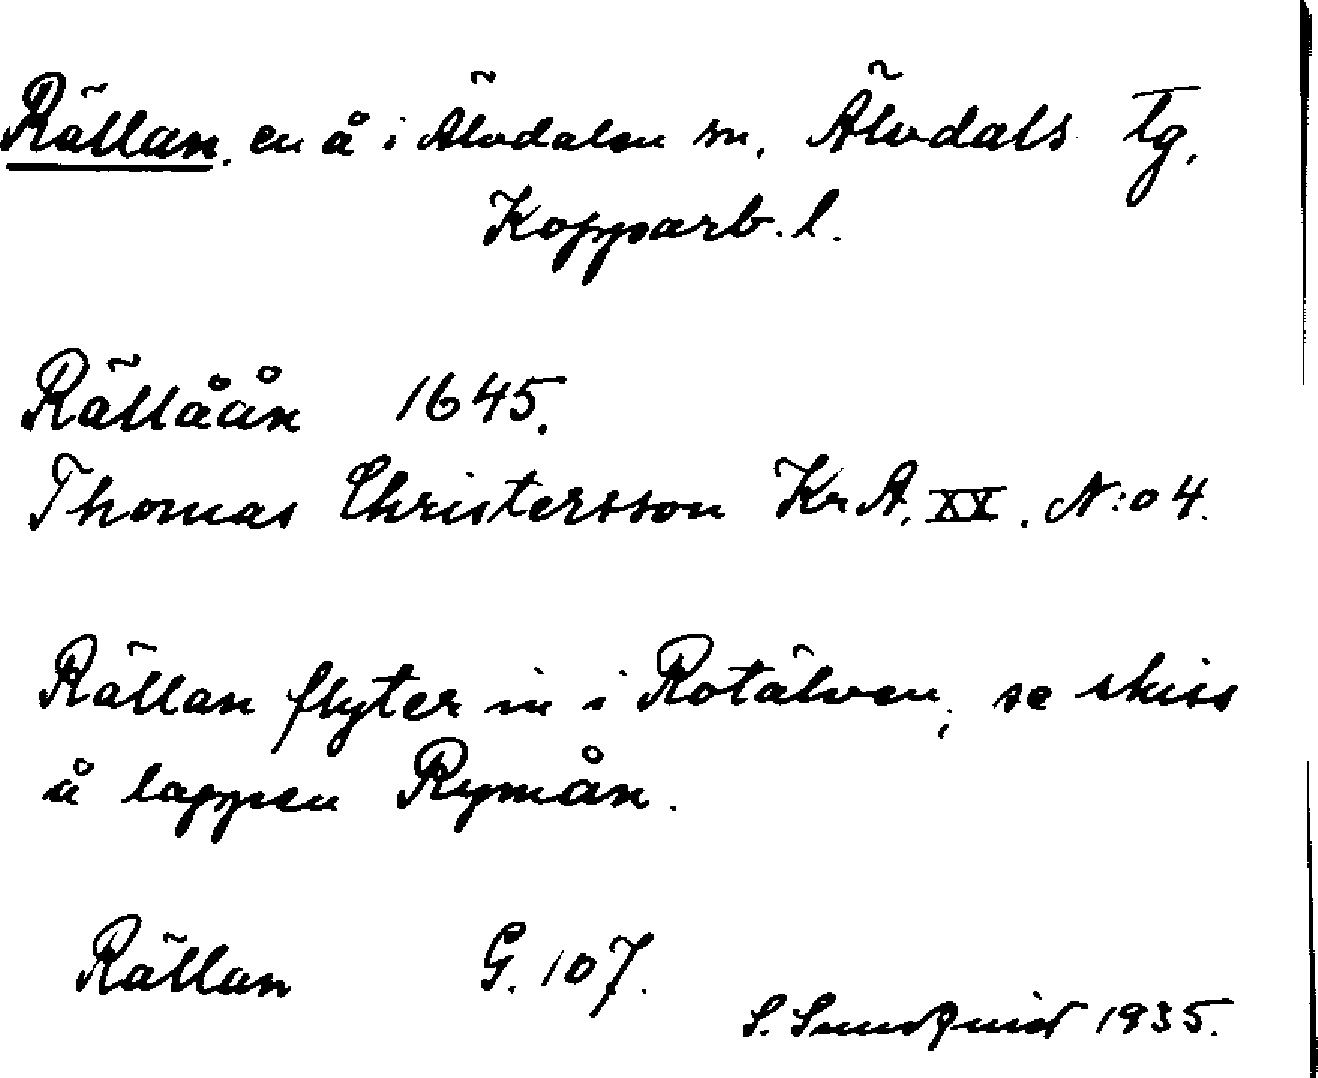 Rällan, en å i Älvdalen sn, Älvdals tg,
Kopparb. l.
Rällåån 1645.
Thomas Christersson Kr A. XX. N:o 4.
Rällan flyter in i Rotälven, se skiss
å lappen Rymån.
Rällan G. 107.
S. Sundquist 1935.